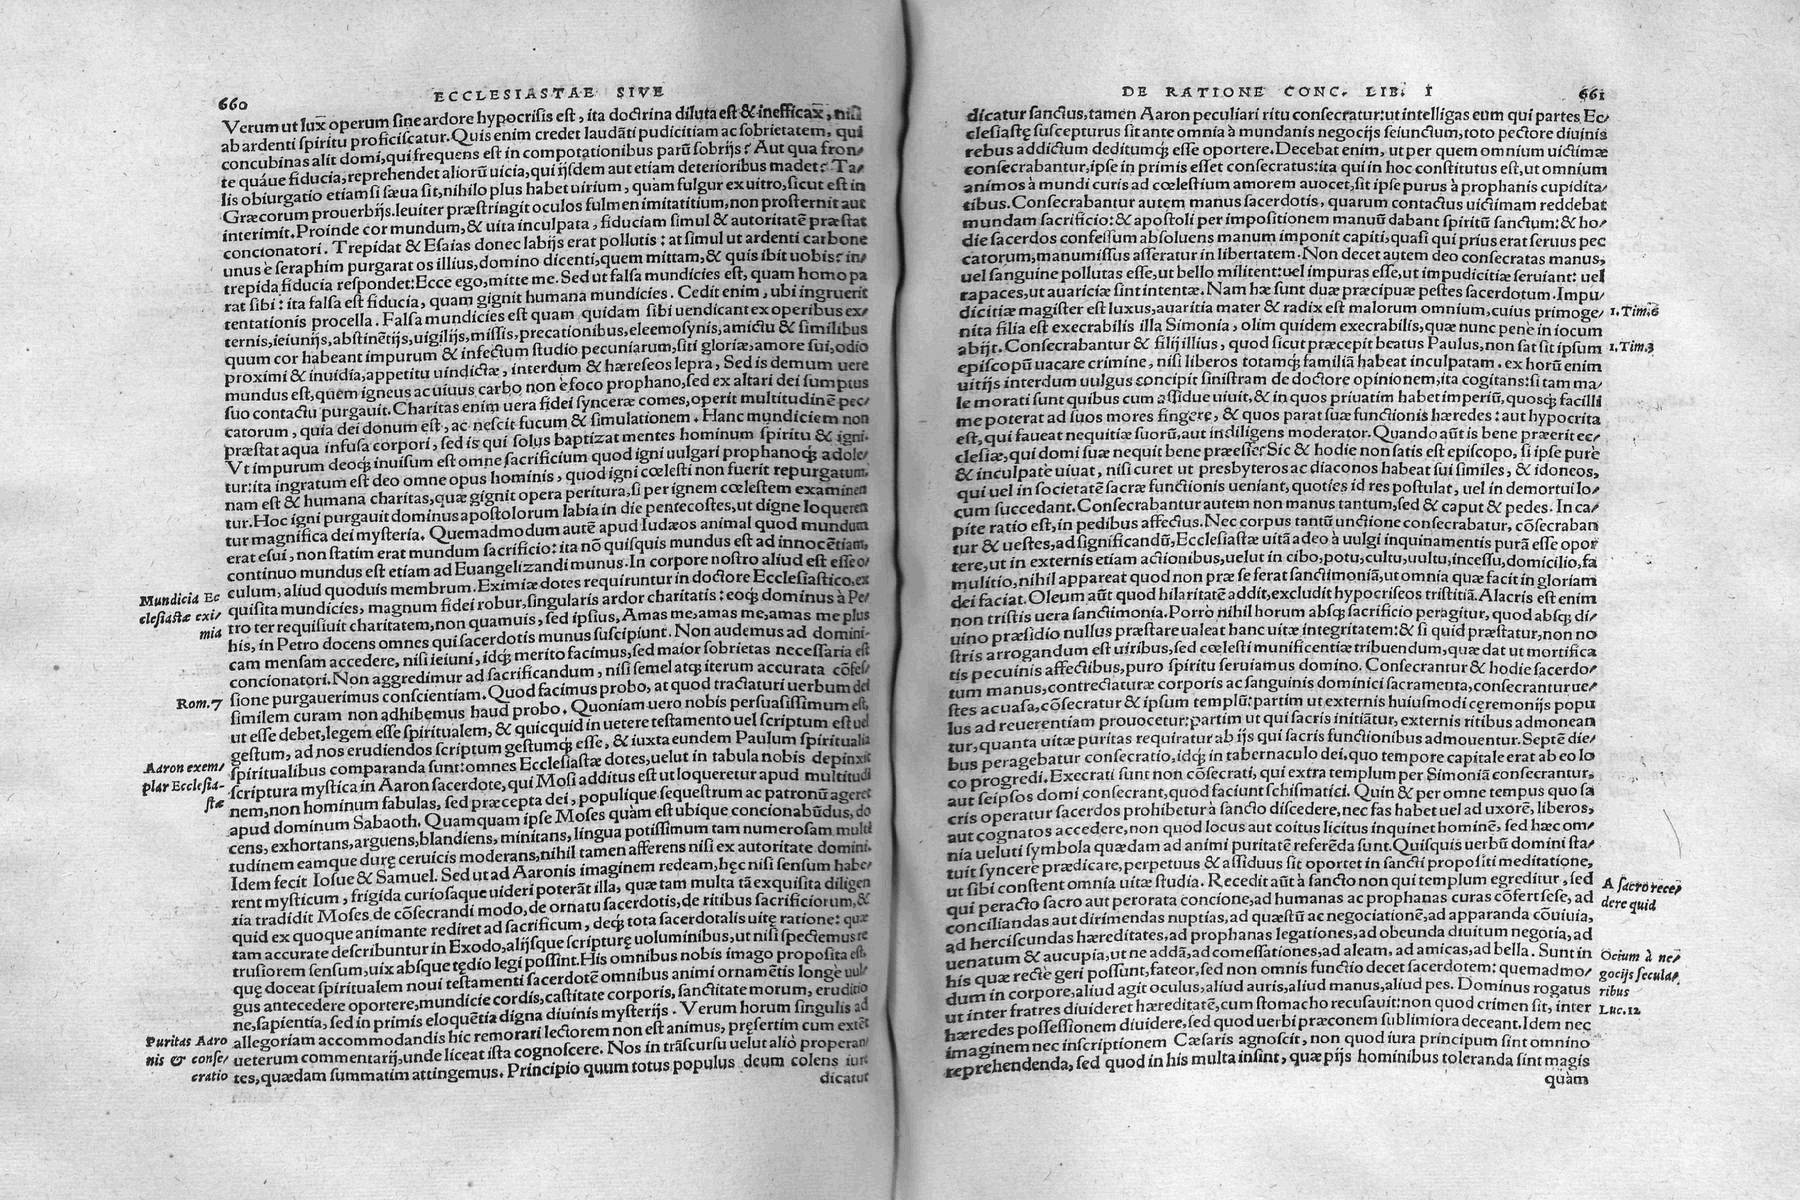 660
ECCLESIASTAE SIVE
Verum ut lux operum sine ardore hypocrisis est, ita doctrina diluta est & inefficax, nisi
ab ardenti spiritu proficiscatur. Quis enim credet laudāti pudicitiam ac sobrietatem, qui
concubinas alit domi, qui frequens est in compotationibus parū sobrijs? Aut qua fron/
te quáue fiducia, reprehendet aliorū uicia, qui ijsdem aut etiam deterioribus madet? Ta/
lis obiurgatio etiamsi sæua sit, nihilo plus habet uirium, quàm fulgur ex uitro, sicut est in
Græcorum prouerbijs. leuiter præstringit oculos fulmen imitatitium, non prosternit aut
interimit. Proinde cor mundum, & uita inculpata, fiduciam simul & autoritatē præstat
concionatori. Trepidat & Esaias donec labijs erat pollutis: at simul ut ardenti carbone
unus è seraphim purgarat os illius, domino dicenti, quem mittam, & quis ibit uobis? in/
trepida fiducia respondet: Ecce ego, mitte me. Sed ut falsa mundicies est, quam homo pa
rat sibi: ita falsa est fiducia, quam gignit humana mundicies. Cedit enim, ubi ingruerit
tentationis procella. Falsa mundicies est quam quidam sibi uendicant ex operibus ex/
ternis, ieiunijs, abstinētijs, uigilijs, missis, precationibus, eleemosynis, amictu & similibus
quum cor habeant impurum & infectum studio pecuniarum, siti gloriæ, amore sui, odio
proximi & inuidia, appetitu uindictæ, interdum & hæreseos lepra, Sed is demum uere
mundus est, quem igneus ac uiuus carbo non è foco prophano, sed ex altari dei sumptus
suo contactu purgauit. Charitas enim uera fidei synceræ comes, operit multitudinē pec/
catorum, quia dei donum est, ac nescit fucum & simulationem. Hanc mundiciem non
præstat aqua infusa corpori, sed is qui solus baptizat mentes hominum spiritu & igni.
Vt impurum deoq; inuisum est omne sacrificium quod igni uulgari prophanoq; adole/
tur: ita ingratum est deo omne opus hominis, quod igni cœlesti non fuerit repurgatum.
nam est & humana charitas, quæ gignit opera peritura, si per ignem cœlestem examinen
tur. Hoc igni purgauit dominus apostolorum labia in die pentecostes, ut digne loqueren
tur magnifica dei mysteria. Quemadmodum autē apud Iudæos animal quod mundum
erat esui, non statim erat mundum sacrificio: ita nō quisquis mundus est ad innocētiam,
continuo mundus est etiam ad Euangelizandi munus. In corpore nostro aliud est esse o/
culum, aliud quoduis membrum. Eximiæ dotes requiruntur in doctore Ecclesiastico, ex
quisita mundicies, magnum fidei robur, singularis ardor charitatis: eoq; dominus à Pe/
tro ter requisiuit charitatem, non quamuis, sed ipsius, Amas me, amas me, amas me plus
his, in Petro docens omnes qui sacerdotis munus suscipiunt. Non audemus ad domini-
cam mensam accedere, nisi ieiuni, idq; merito facimus, sed maior sobrietas necessaria est
concionatori. Non aggredimur ad sacrificandum, nisi semel atq; iterum accurata cōfes/
sione purgauerimus conscientiam. Quod facimus probo, at quod tractaturi uerbum dei
similem curam non adhibemus haud probo. Quoniam uero nobis persuasissimum est,
ut esse debet, legem esse spiritualem, & quicquid in uetere testamento uel scriptum est uel
gestum, ad nos erudiendos scriptum gestumq; esse, & iuxta eundem Paulum spiritualia
spiritualibus comparanda sunt: omnes Ecclesiastæ dotes, uelut in tabula nobis depinxit
scriptura mystica in Aaron sacerdote, qui Mosi additus est ut loqueretur apud multitudi
nem, non hominum fabulas, sed præcepta dei, populique sequestrum ac patronū ageret
apud dominum Sabaoth. Quamquam ipse Moses quàm est ubique concionabūdus, do
cens, exhortans, arguens, blandiens, minitans, lingua potissimum tam numerosam multi
tudinem eamque durę ceruicis moderans, nihil tamen afferens nisi ex autoritate domini.
Idem fecit Iosue & Samuel. Sed ut ad Aaronis imaginem redeam, hęc nisi sensum habe/
rent mysticum, frigida curiosaque uideri poterāt illa, quæ tam multa tā exquisita diligen
tia tradidit Moses de cōsecrandi modo, de ornatu sacerdotis, de ritibus sacrificiorum, &
quid ex quoque animante rediret ad sacrificum, deq; tota sacerdotalis uitę ratione: quæ
tam accurate describuntur in Exodo, alijsque scripturę uoluminibus, ut nisi spectemus re
trusiorem sensum, uix absque tędio legi possint. His omnibus nobis imago proposita est,
quę doceat spiritualem noui testamenti sacerdotē omnibus animi ornamētis longè uul/
gus antecedere oportere, mundicie cordis, castitate corporis, sanctitate morum, eruditio
ne, sapientia, sed in primis eloquētia digna diuinis mysterijs. Verum horum singulis ad
allegoriam accommodandis hic remorari lectorem non est animus, pręsertim cum extēt
ueterum commentarij, unde liceat ista cognoscere. Nos in trāscursu uelut aliò properan/
tes, quædam summatim attingemus. Principio quum totus populus deum colens iure
dicatur
Mundicia Ec
clesiastæ exi/
mia
Rom. 7
Aaron exem/
plar Ecclesia-
stæ
Puritas Aaro
nis & conse/
cratio
DE RATIONE CONC. LIB. I
661
dicatur sanctus, tamen Aaron peculiari ritu consecratur: ut intelligas eum qui partes Ec/
clesiastę suscepturus sit ante omnia à mundanis negocijs seiunctum, toto pectore diuinis
rebus addictum deditumq; esse oportere. Decebat enim, ut per quem omnium uictimæ
consecrabantur, ipse in primis esset consecratus: ita qui in hoc constitutus est, ut omnium
animos à mundi curis ad cœlestium amorem auocet, sit ipse purus à prophanis cupidita/
tibus. Consecrabantur autem manus sacerdotis, quarum contactus uictimam reddebat
mundam sacrificio: & apostoli per impositionem manuū dabant spiritū sanctum: & ho/
die sacerdos confessum absoluens manum imponit capiti, quasi qui prius erat seruus pec
catorum, manumissus asseratur in libertatem. Non decet autem deo consecratas manus,
uel sanguine pollutas esse, ut bello militent: uel impuras esse, ut impudicitiæ seruiant: uel
rapaces, ut auariciæ sint intentæ. Nam hæ sunt duæ præcipuæ pestes sacerdotum. Impu/
dicitiæ magister est luxus, auaritia mater & radix est malorum omnium, cuius primoge/
nita filia est execrabilis illa Simonia, olim quidem execrabilis, quæ nunc penè in iocum
abijt. Consecrabantur & filij illius, quod sicut præcepit beatus Paulus, non sat sit ipsum
episcopū uacare crimine, nisi liberos totamq; familiā habeat inculpatam. ex horū enim
uitijs interdum uulgus concipit sinistram de doctore opinionem, ita cogitans: si tam ma/
le morati sunt quibus cum assidue uiuit, & in quos priuatim habet imperiū, quosq; facilli
me poterat ad suos mores fingere, & quos parat suæ functionis hæredes: aut hypocrita
est, qui faueat nequitiæ suorū, aut indiligens moderator. Quando aūt is bene præerit ec/
clesiæ, qui domi suæ nequit bene præesse? Sic & hodie non satis est episcopo, si ipse purè
& inculpatè uiuat, nisi curet ut presbyteros ac diaconos habeat sui similes, & idoneos,
qui uel in societatē sacræ functionis ueniant, quoties id res postulat, uel in demortui lo/
cum succedant. Consecrabantur autem non manus tantum, sed & caput & pedes. In ca/
pite ratio est, in pedibus affectus. Nec corpus tantū unctione consecrabatur, cōsecraban
tur & uestes, ad significandū, Ecclesiastæ uitā adeo à uulgi inquinamentis purā esse opor
tere, ut in externis etiam actionibus, uelut in cibo, potu, cultu, uultu, incessu, domicilio, fa
mulitio, nihil appareat quod non præ se ferat sanctimoniā, ut omnia quæ facit in gloriam
dei faciat. Oleum aūt quod hilaritatē addit, excludit hypocriseos tristitiā. Alacris est enim
non tristis uera sanctimonia. Porrò nihil horum absq; sacrificio peragitur, quod absq; di/
uino præsidio nullus præstare ualeat hanc uitæ integritatem: & si quid præstatur, non no
stris arrogandum est uiribus, sed cœlesti munificentiæ tribuendum, quæ dat ut mortifica
tis pecuinis affectibus, puro spiritu seruiamus domino. Consecrantur & hodie sacerdo/
tum manus, contrectaturæ corporis ac sanguinis dominici sacramenta, consecrantur ue/
stes ac uasa, cōsecratur & ipsum templū: partim ut externis huiusmodi ceremonijs popu
lus ad reuerentiam prouocetur: partim ut qui sacris initiātur, externis ritibus admonean
tur, quanta uitæ puritas requiratur ab ijs qui sacris functionibus admouentur. Septē die/
bus peragebatur consecratio, idq; in tabernaculo dei, quo tempore capitale erat ab eo lo
co progredi. Execrati sunt non cōsecrati, qui extra templum per Simoniā consecrantur,
aut seipsos domi consecrant, quod faciunt schismatici. Quin & per omne tempus quo sa
cris operatur sacerdos prohibetur à sancto discedere, nec fas habet uel ad uxorē, liberos,
aut cognatos accedere, non quod locus aut coitus licitus inquinet hominē, sed hæc om/
nia ueluti symbola quædam ad animi puritatē referēda sunt. Quisquis uerbū domini sta/
tuit syncerè prædicare, perpetuus & assiduus sit oportet in sancti propositi meditatione,
ut sibi constent omnia uitæ studia. Recedit aūt à sancto non qui templum egreditur, sed
qui peracto sacro aut perorata concione, ad humanas ac prophanas curas cōfert sese, ad
conciliandas aut dirimendas nuptias, ad quæstū ac negociationē, ad apparanda cōuiuia,
ad herciscundas hæreditates, ad prophanas legationes, ad obeunda diuitum negotia, ad
uenatum & aucupia, ut ne addā, ad comessationes, ad aleam, ad amicas, ad bella. Sunt in
his quæ rectè geri possunt, fateor, sed non omnis functio decet sacerdotem: quemadmo/
dum in corpore, aliud agit oculus, aliud auris, aliud manus, aliud pes. Dominus rogatus
ut inter fratres diuideret hæreditatē, cum stomacho recusauit: non quod crimen sit, inter
hæredes possessionem diuidere, sed quod uerbi præconem sublimiora deceant. Idem nec
imaginem nec inscriptionem Cæsaris agnoscit, non quod iura principum sint omnino
reprehendenda, sed quod in his multa insint, quæ pijs hominibus toleranda sint magis
quàm
1. Tim. 6
1. Tim. 3
A sacro rece/
dere quid
Ocium à ne/
gocijs secula/
ribus
Luc. 12